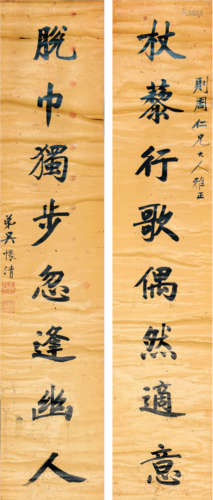 則周仁兄大人雅正
杖藜行歌偶然適意
脫巾獨步忽逢幽人
弟吳懷清